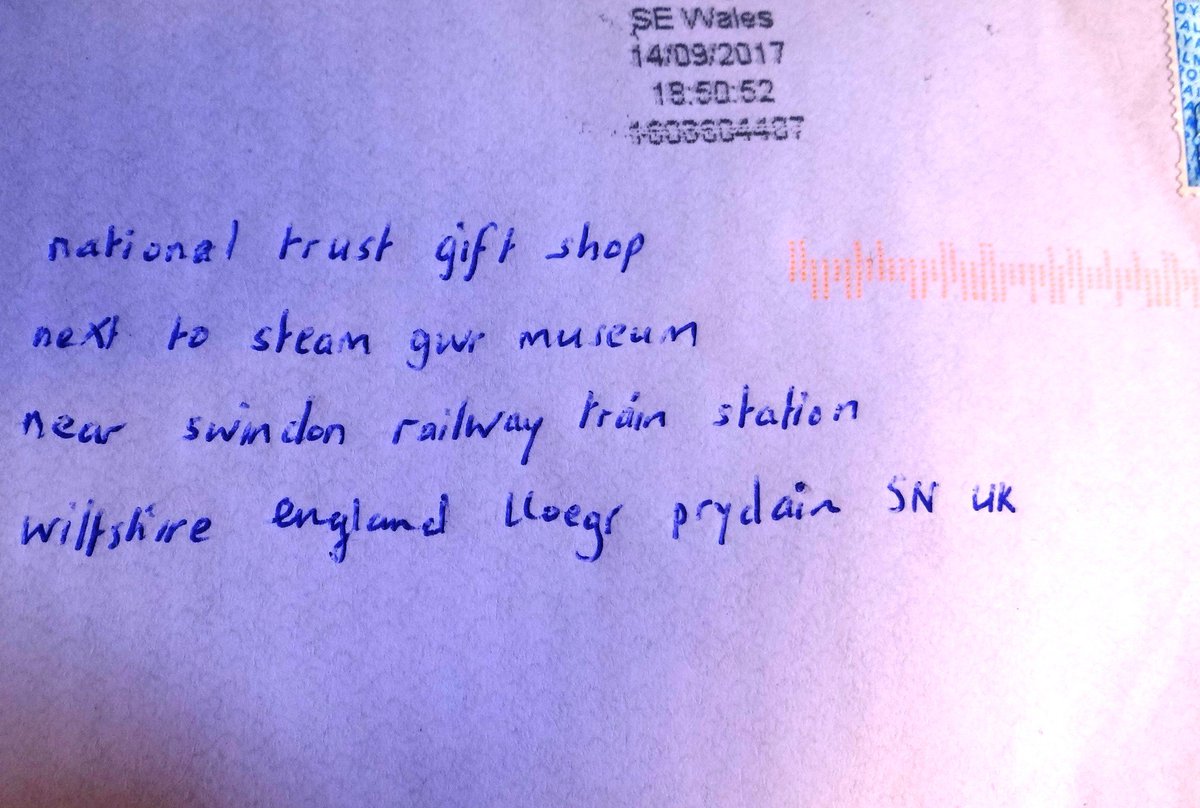 SE Wales
14/09/2017
18:50:52
national trust gift shop
next to steam gwr museum
near swindon railway train station
wiltshire england lloegr prydain SN UK